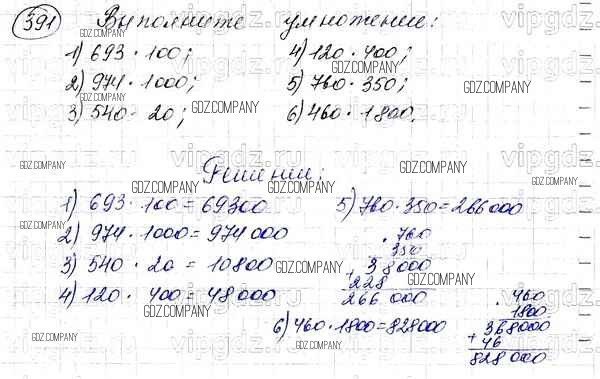 391 Выполните умножение:
1) 693 · 100;
2) 974 · 1000;
3) 540 · 20;
4) 120 · 400;
5) 760 · 350;
6) 460 · 1800.
Решение:
1) 693 · 100 = 69300
2) 974 · 1000 = 974 000
3) 540 · 20 = 10800
4) 120 · 400 = 48000
5) 760 · 350 = 266000
· 760
350
38000
+ 228
266 000
6) 460 · 1800 = 828000
· 460
1800
368000
+ 46
828 000
GDZ.COMPANY
vipgdz.com